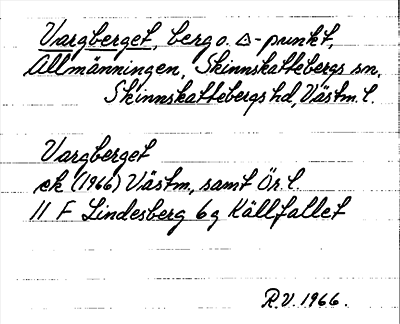 Vargberget, berg o. △-punkt,
Allmänningen, Skinnskattebergs sn,
Skinnskattebergs hd, Västm. l.
Vargberget
ek (1966) Västm, samt Ör. l.
11 F Lindesberg 6 g Källfallet
R.V. 1966.